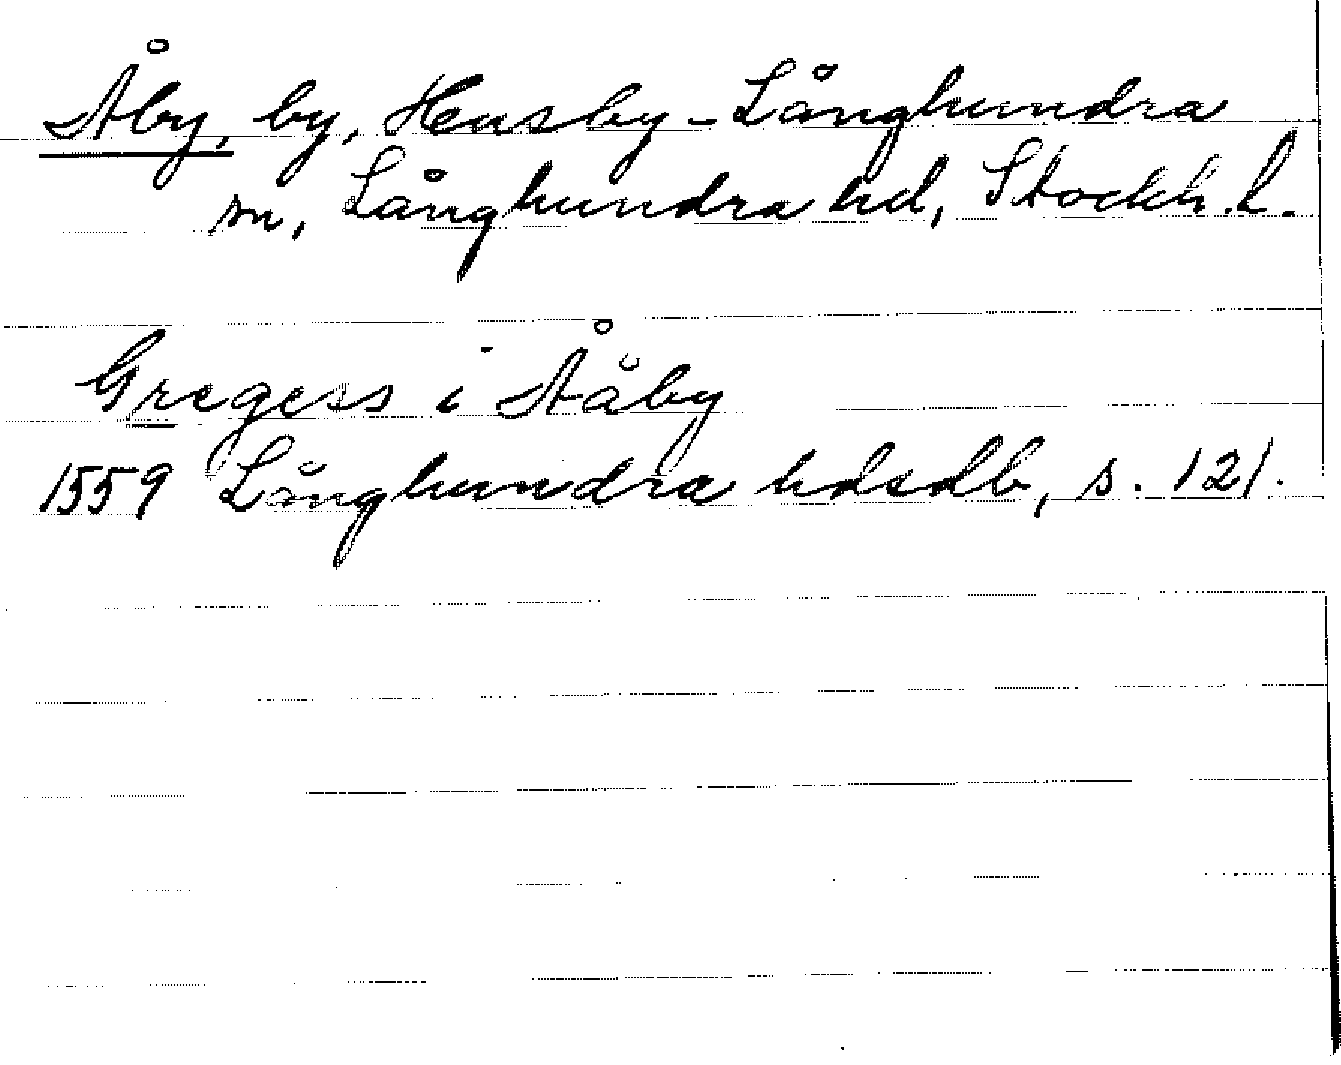 Åby, by, Husby-Långhundra
sn, Långhundra hd, Stockh. l.
Gregess i Åäby
1559 Långhundra hdsdb, s. 121.